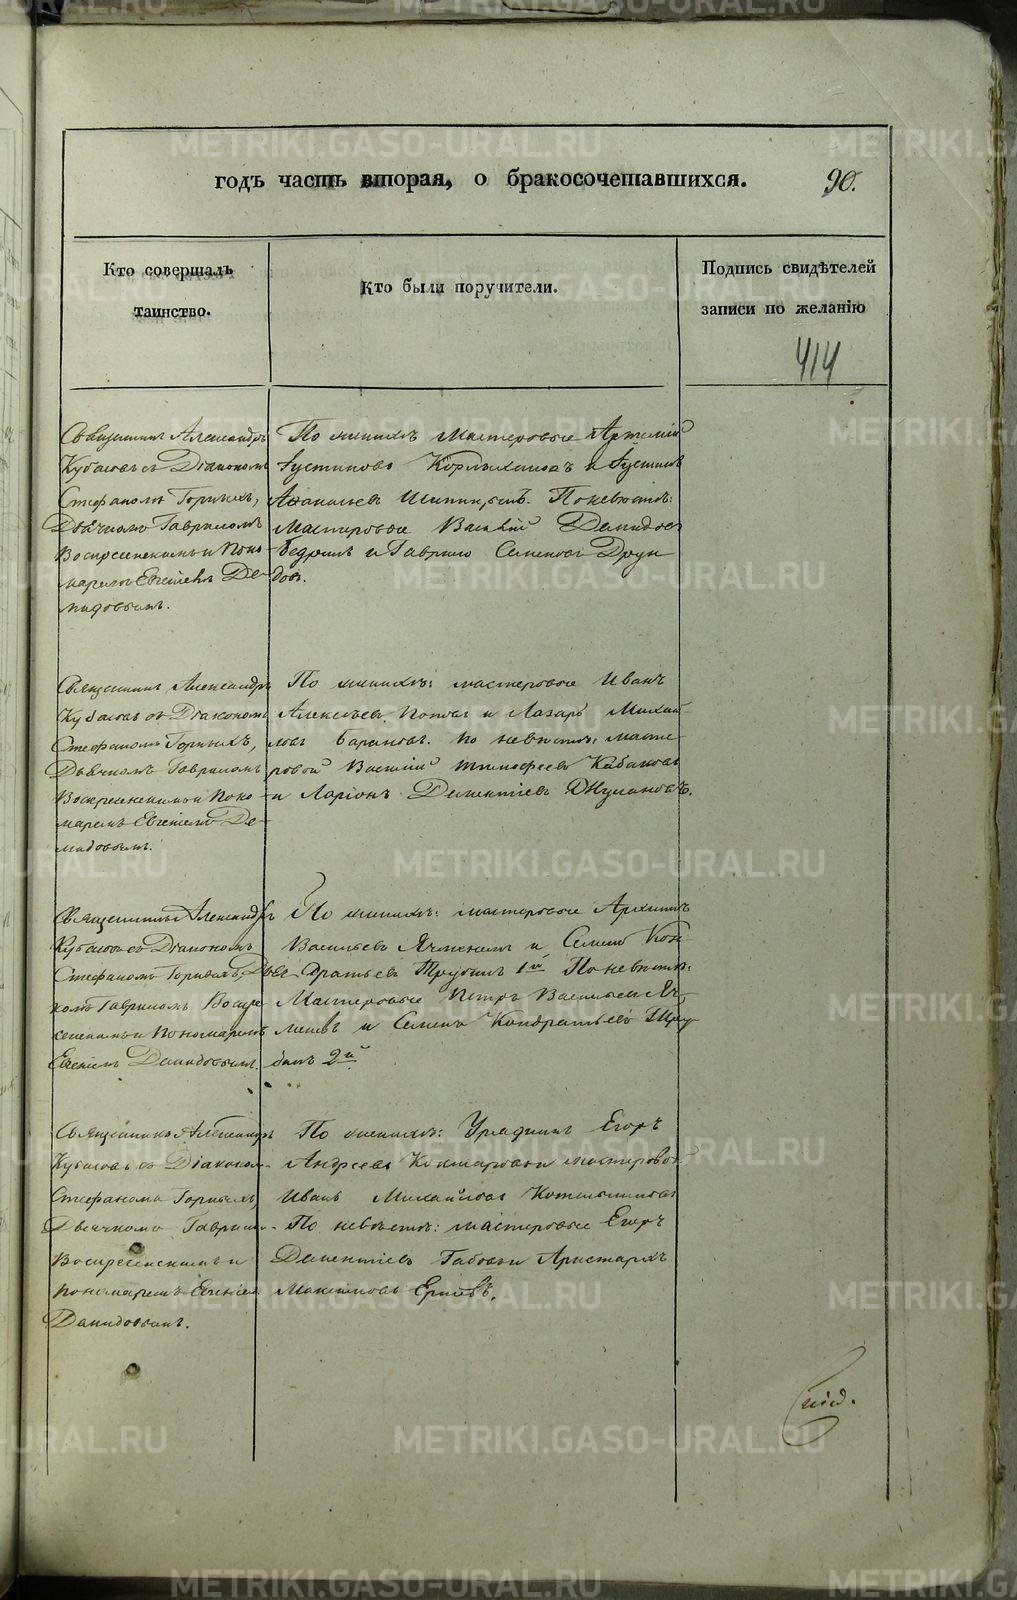 годъ часть вторая, о бракосочетавшихся. 90.
Кто совершалъ
таинство.
Кто были поручители.
Подпись свидѣтелей
записи по желанію
414
Священникъ Александръ
Кубасовъ съ Діакономъ
Стефаномъ Горныхъ,
Дьячкомъ Гавриломъ
Воскресенскимъ и Поно-
маремъ Евгеніемъ Де-
мидовымъ.
По женихѣ мастеровые Артемій
Іустиновъ и Іустинъ
По невѣстѣ:
Мастеровые Василій
и Гаврило Семеновъ
Священникъ Александръ
Кубасовъ съ Діакономъ
Стефаномъ Горныхъ,
Дьячкомъ Гавриломъ
Воскресенскимъ и Поно-
маремъ Евгеніемъ Де-
мидовымъ.
По женихѣ: мастеровые Иванъ
Алексѣевъ Поповъ и Лазарь Михай
ловъ Бариновъ. По невѣстѣ: масте-
ровой Василій Тимофеевъ Кабаковъ
и Ларіонъ Дементіевъ
Священникъ Александръ
Кубасовъ съ Діакономъ
Стефаномъ Горныхъ, Дьяч-
комъ Гавриломъ Воскре-
сенскимъ и Пономаремъ
Евгеніемъ Демидовымъ.
По женихѣ: мастеровые Архипъ
Васильевъ и Семенъ Кон-
дратьевъ Трубинъ 1й По невѣстѣ:
Мастеровые Петръ Васильевъ Яч-
меневъ и Семенъ Кондратьевъ Тру
бинъ 2й.
Священникъ Александръ
Кубасовъ съ Діакономъ
Стефаномъ Горныхъ,
Дьячкомъ Гавриломъ
Воскресенскимъ и
Пономаремъ Евгеніемъ
Демидовымъ.
По женихѣ: Урядникъ Егоръ
Андреевъ Комаровъ и мастеровой
Иванъ Михайловъ Котельниковъ
По невѣстѣ: мастеровые Егоръ
Дементіевъ Бабовъ и Аристархъ
METRIKI.GASO-URAL.RU